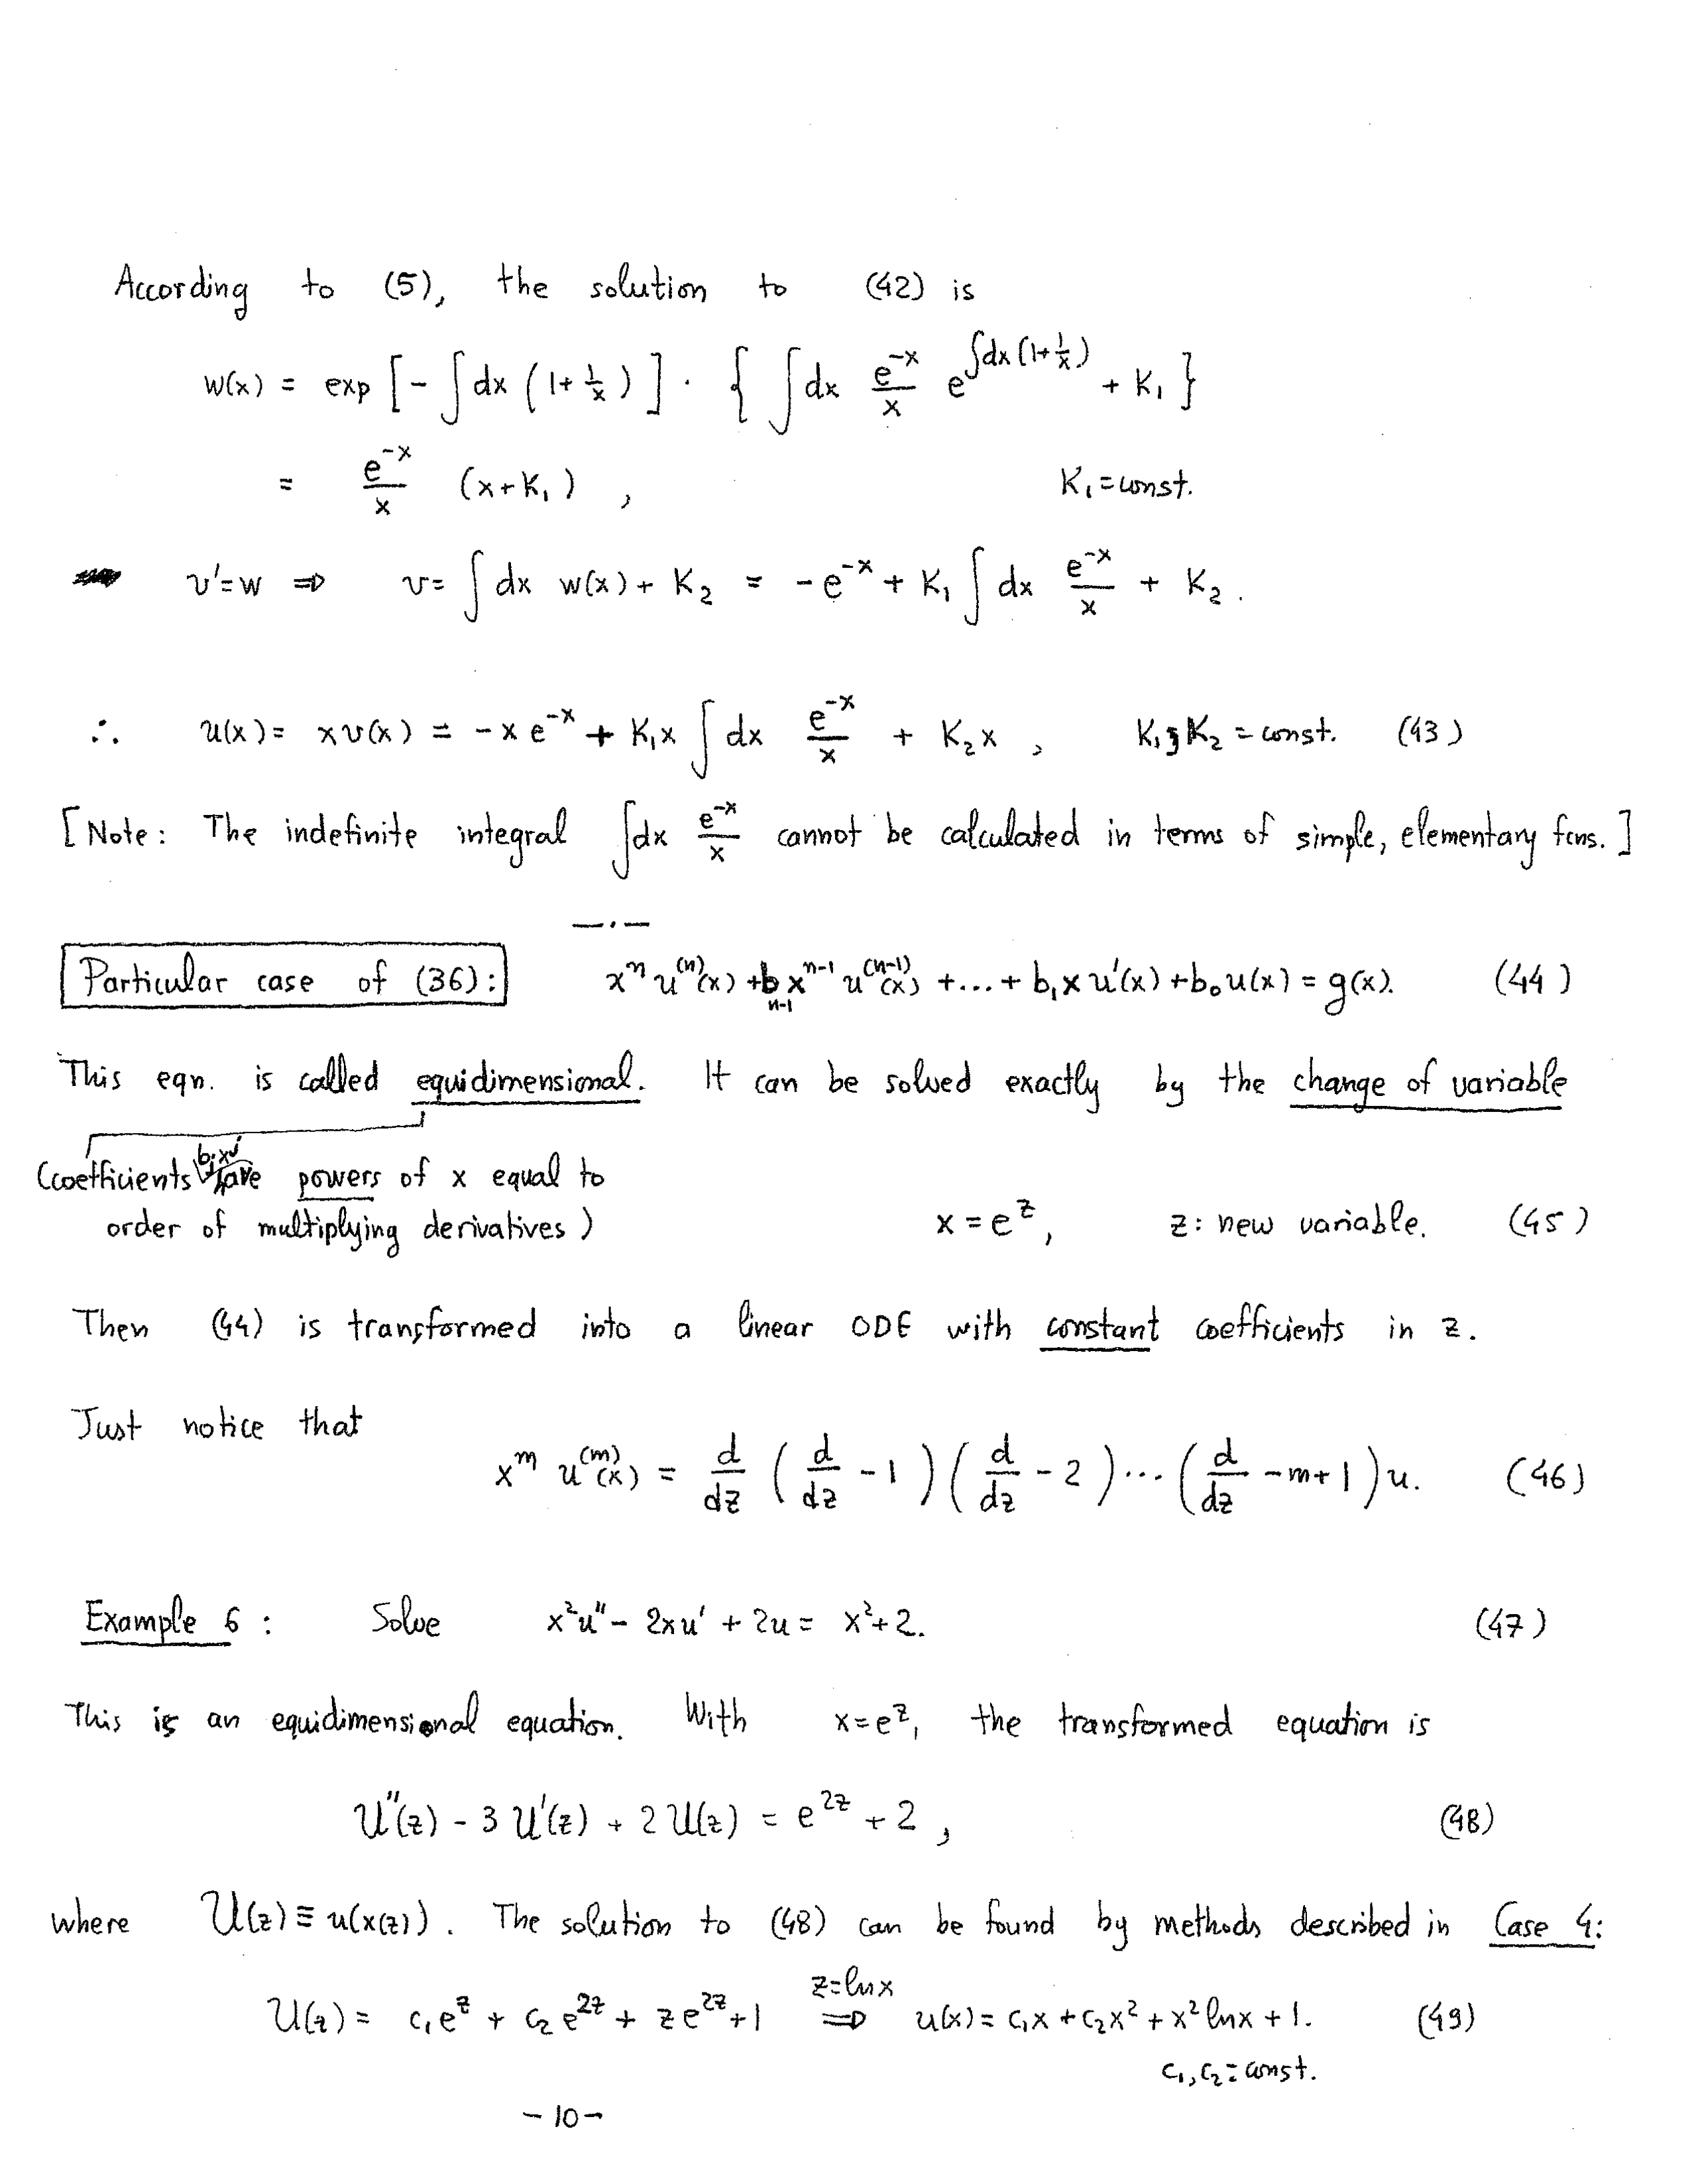 According to (5), the solution to (42) is
w(x) = exp [ - ∫dx (1+ 1/x) ] · { ∫dx e^{-x}/x e^{∫dx (1+ 1/x)} + K₁ }
= e^{-x}/x (x+K₁) , K₁ = const.
v'=w ⇒ v= ∫dx w(x) + K₂ = - e^{-x} + K₁ ∫dx e^{-x}/x + K₂ .
∴ u(x) = x v(x) = - x e^{-x} + K₁x ∫dx e^{-x}/x + K₂ x , K₁, K₂ = const. (43)
[Note: The indefinite integral ∫dx e^{-x}/x cannot be calculated in terms of simple, elementary fcns.]
—.—
Particular case of (36): xⁿ u⁽ⁿ⁾(x) + b_{n-1} x^{n-1} u^{(n-1)}(x) +...+ b₁ x u'(x) + b₀ u(x) = g(x). (44)
This eqn. is called equidimensional. It can be solved exactly by the change of variable
(coefficients b_j x^j have powers of x equal to
order of multiplying derivatives)
x = e^z, z: new variable. (45)
Then (44) is transformed into a linear ODE with constant coefficients in z.
Just notice that
x^m u^{(m)}(x) = d/dz (d/dz - 1)(d/dz - 2)···(d/dz - m+1)u. (46)
Example 6: Solve x²u'' - 2xu' + 2u = x²+2. (47)
This is an equidimensional equation. With x=e^z, the transformed equation is
U''(z) - 3 U'(z) + 2 U(z) = e^{2z} + 2 , (48)
where U(z) ≡ u(x(z)). The solution to (48) can be found by methods described in Case 4:
U(z) = c₁e^z + c₂e^{2z} + ze^{2z} + 1 z=lnx ⇒ u(x) = c₁x + c₂x² + x² lnx + 1. (49)
c₁, c₂ = const.
- 10 -